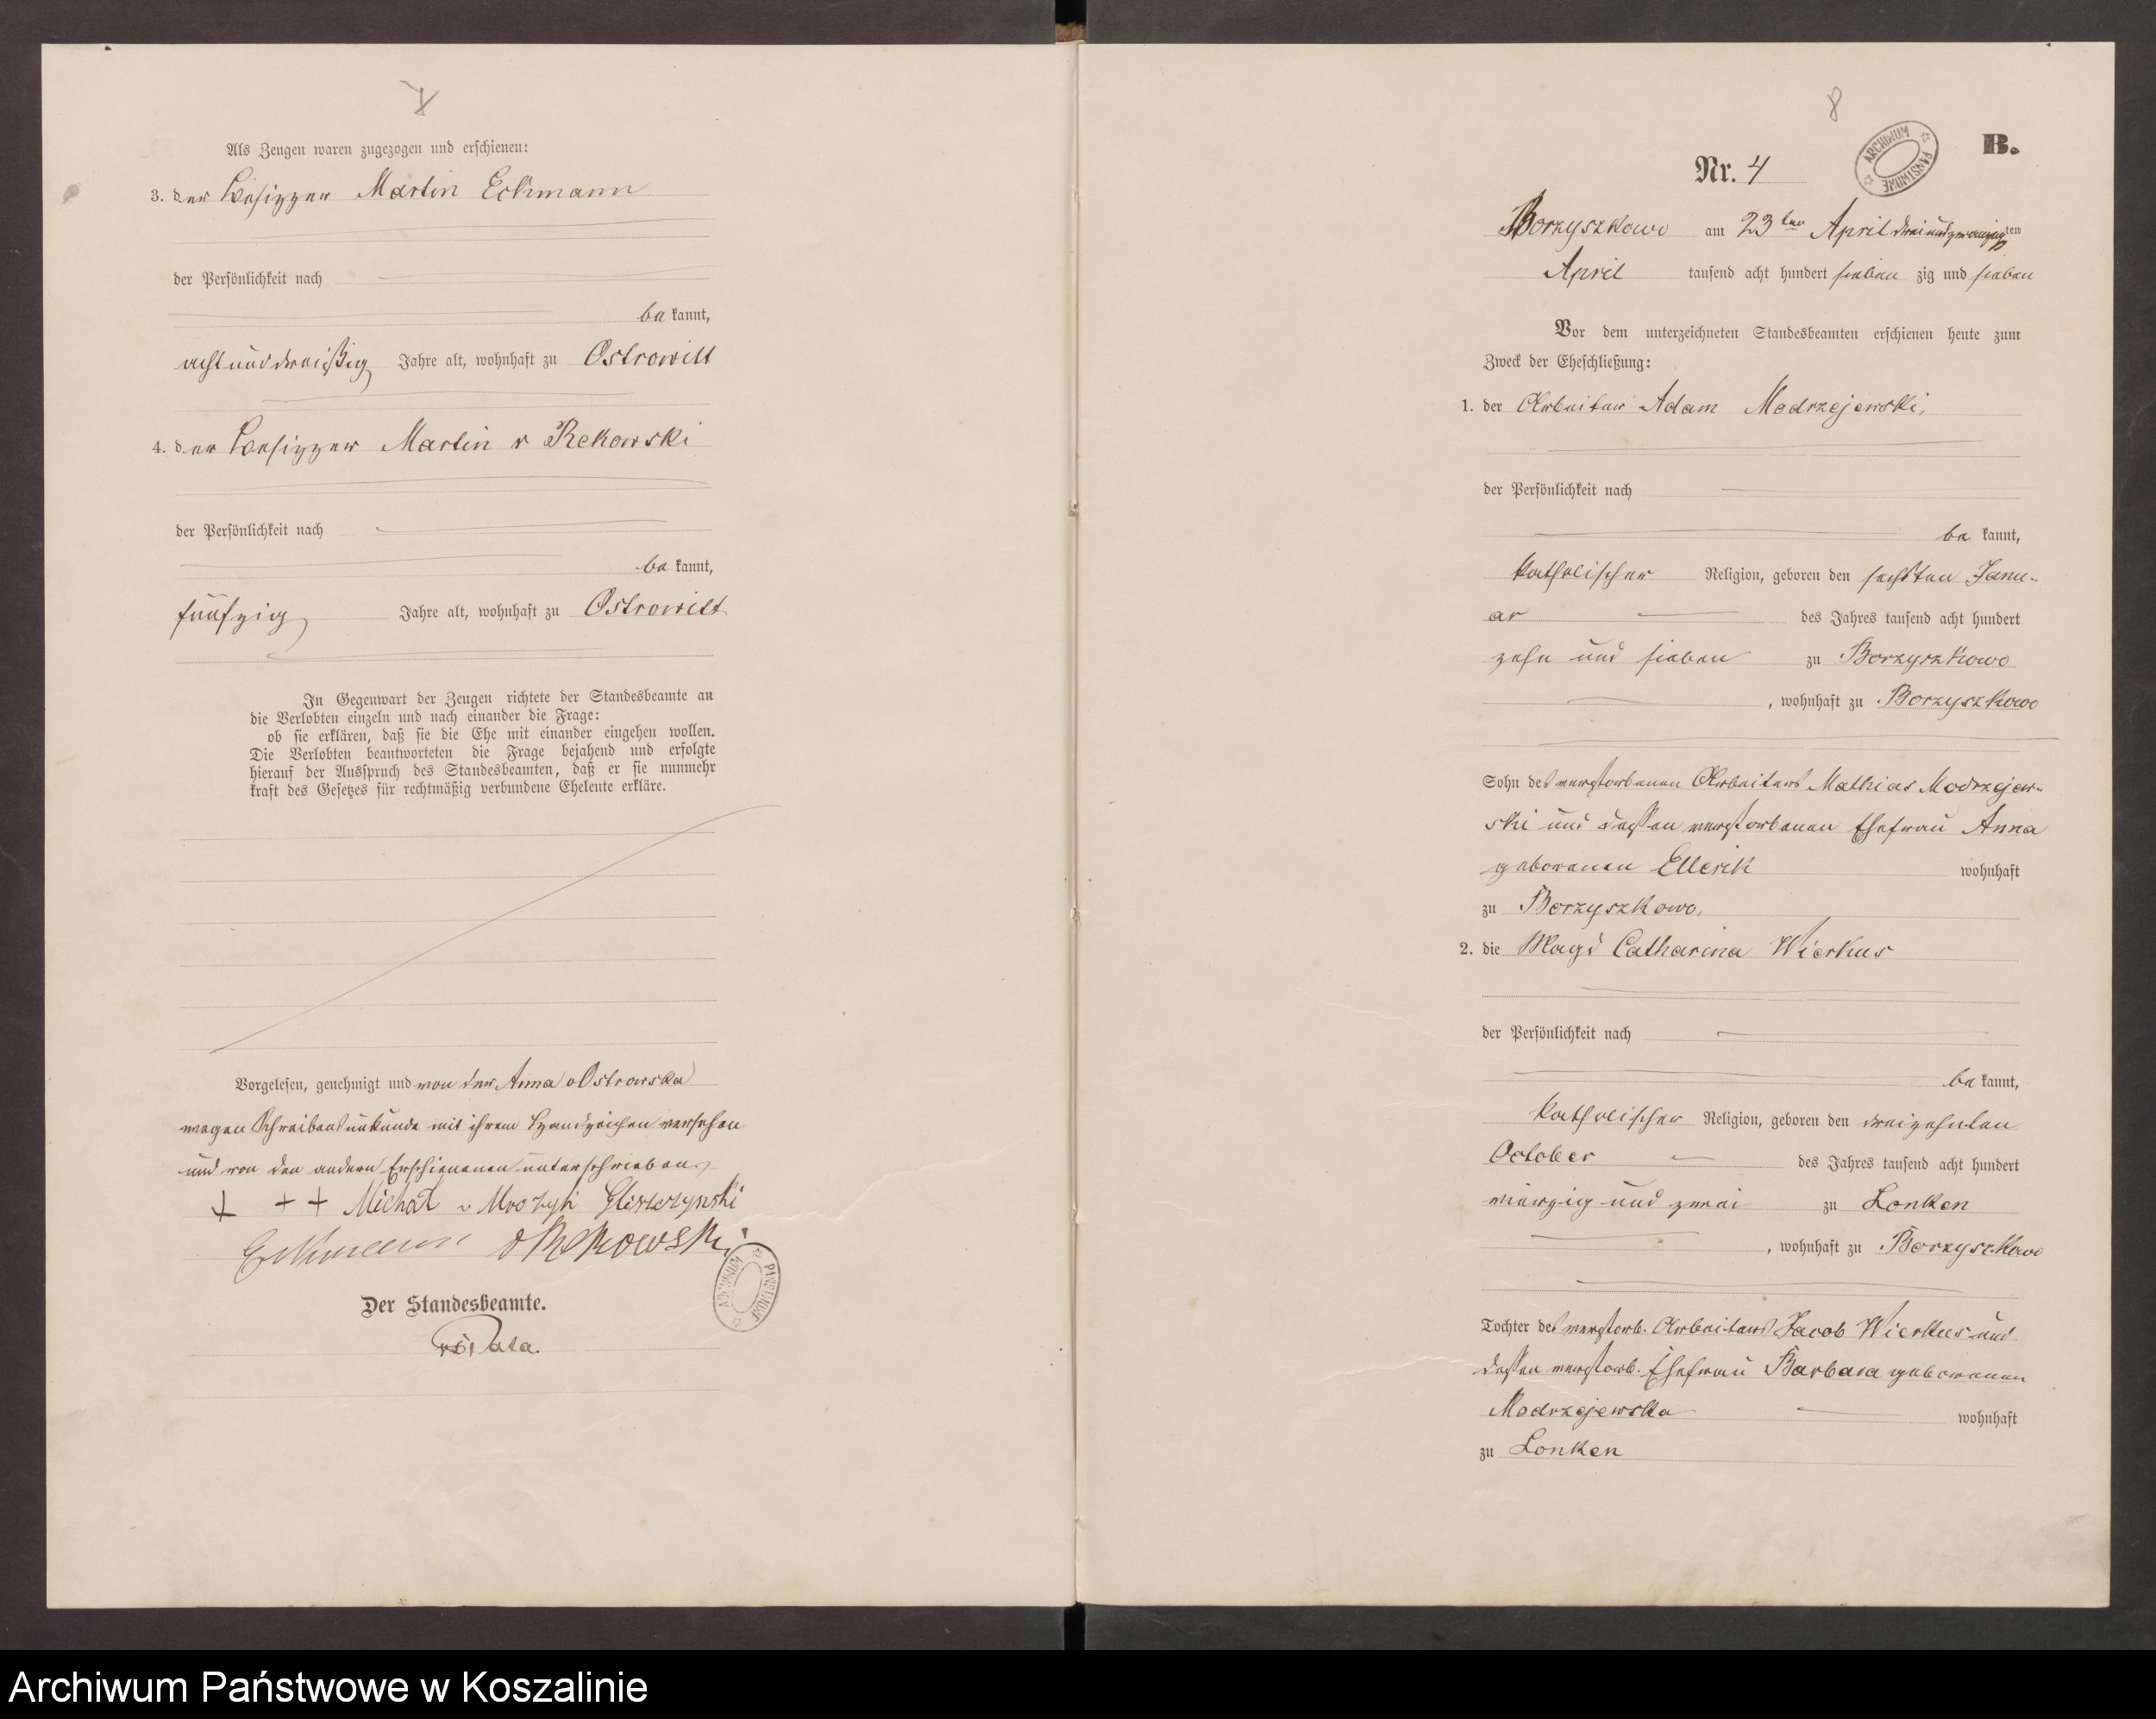 7
Als Zeugen waren zugezogen und erschienen:
3. der Besitzer Martin Eckmann
der Persönlichkeit nach
be kannt,
acht und dreißig Jahre alt, wohnhaft zu Ostrowitt
4. der Besitzer Martin v Rekowski
der Persönlichkeit nach
be kannt,
fünfzig Jahre alt, wohnhaft zu Ostrowitt
In Gegenwart der Zeugen richtete der Standesbeamte an
die Verlobten einzeln und nach einander die Frage:
ob sie erklären, daß sie die Ehe mit einander eingehen wollen.
Die Verlobten beantworteten die Frage bejahend und erfolgte
hierauf der Ausspruch des Standesbeamten, daß er sie nunmehr
kraft des Gesetzes für rechtmäßig verbundene Eheleute erkläre.
Vorgelesen, genehmigt und von der Anna Ostrowska
wegen Schreibensunkunde mit ihrem Handzeichen versehen
und von den andern Erschienenen unterschrieben.
+ + + Michał v Mrozyk Gliszczynski
Eckmann v Rekowski
ARCHIWUM PAŃSTWOWE
Der Standesbeamte.
8
ARCHIWUM PAŃSTWOWE
B.
Nr. 4
Borzyszkowo am 23ten April dreiundzwanzigten
April tausend acht hundert sieben zig und sieben
Vor dem unterzeichneten Standesbeamten erschienen heute zum
Zweck der Eheschließung:
1. der Arbeiter Adam Modrzejewski,
der Persönlichkeit nach
be kannt,
katholischer Religion, geboren den sechsten Janu-
ar des Jahres tausend acht hundert
zehn und sieben zu Borzyszkowo
, wohnhaft zu Borzyszkowo
Sohn des verstorbenen Arbeiters Mathias Modrzejew-
ski und dessen verstorbenen Ehefrau Anna
geborenen Ellerik wohnhaft
zu Borzyszkowo.
2. die Magd Catharina Wierkus
der Persönlichkeit nach
be kannt,
katholischer Religion, geboren den dreizehnten
October des Jahres tausend acht hundert
vierzig und zwei zu Lonken
, wohnhaft zu Borzyszkowo
Tochter des verstorb. Arbeiters Jacob Wierkus und
dessen verstorb. Ehefrau Barbara geborenen
Modrzejewska wohnhaft
zu Lonken
Archiwum Państwowe w Koszalinie